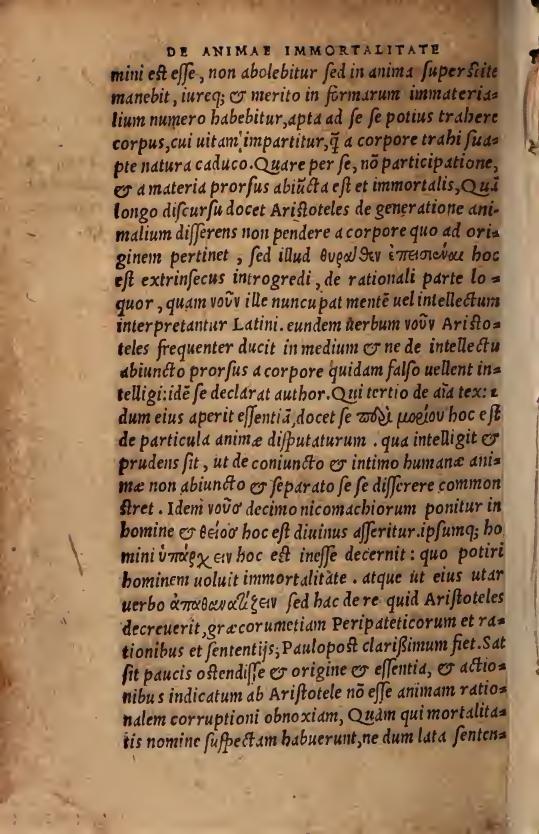 DE ANIMAE IMMORTALITATE
mini est esse, non abolebitur sed in anima superstite
manebit, iureq; & merito in formarum immateria-
lium numero habebitur, apta ad se se potius trahere
corpus, cui uitam impartitur, q̃ a corpore trahi sua-
pte natura caduco. Quare per se, nõ participatione,
& a materia prorsus abiũcta est et immortalis, Quã
longo discursu docet Aristoteles de generatione ani-
malium disserens non pendere a corpore quo ad ori-
ginem pertinet, sed illud θυραὶθεν ἐπεισιέναι hoc
est extrinsecus introgredi, de rationali parte lo-
quor, quam νοῦν ille nuncupat mentẽ uel intellectum
interpretantur Latini. eundem uerbum νοῦν Aristo-
teles frequenter ducit in medium & ne de intellectu
abiuncto prorsus a corpore quidam falso uellent in-
telligi: idẽ se declarat author. Qui tertio de aĩa tex: 1
dum eius aperit essentiã, docet se περὶ μορίου hoc est
de particula animæ disputaturum. qua intelligit &
prudens sit, ut de coniuncto & intimo humanæ ani-
mæ non abiuncto & separato se se disserere common
stret. Idem νοῦσ decimo nicomachiorum ponitur in
homine & θεῖοσ hoc est diuinus asseritur. ipsumq; ho
mini ὑπάρχειν hoc est inesse decernit: quo potiri
hominem uoluit immortalitate. atque ut eius utar
uerbo ἀπαθανατίζειν sed hac de re quid Aristoteles
decreuerit, græcorum etiam Peripateticorum et ra-
tionibus et sententijs, Paulopost clarißimum fiet. Sat
sit paucis ostendisse & origine & essentia, & actio-
nibus indicatum ab Aristotele nõ esse animam ratio-
nalem corruptioni obnoxiam, Quàm qui mortalita-
tis nomine suspectam habuerunt, ne dum lata senten-